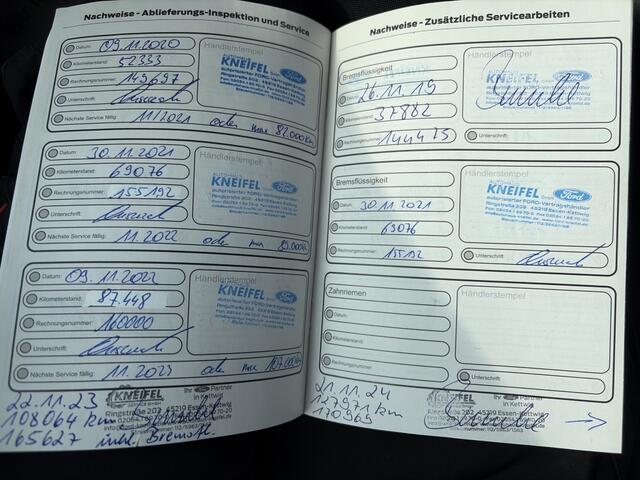 Nachweise - Ablieferungs-Inspektion und Service
Datum: 09.11.2020
Kilometerstand: 52333
Rechnungsnummer: 149697
Unterschrift:
Nächste Service fällig: 11/2021 oder max 82.000 km
Händlerstempel
KNEIFEL
Ford
autorisierter FORD-Vertragshändler
Datum: 30.11.2021
Kilometerstand: 69076
Rechnungsnummer: 155192
Unterschrift:
Nächste Service fällig: 11.2022 oder max
Händlerstempel
AUTOHAUS
KNEIFEL
Ford
autorisierter FORD-Vertragshändler
Ringstraße 202 45219 Essen-Kettwig
Datum: 09.11.2022
Kilometerstand: 87.448
Rechnungsnummer: 160000
Unterschrift:
Nächste Service fällig: 11.2023 oder max 107.000 km
Händlerstempel
KNEIFEL
Ford
autorisierter FORD-Vertragshändler
KNEIFEL
Ihr Partner
in Kettwig
Ringstraße 202, 45219 Essen-Kettwig
22.11.23
108064 km
165627 inkl. Bremsfl.
Nachweise - Zusätzliche Servicearbeiten
Bremsflüssigkeit
26.11.19
37882
Rechnungsnummer: 144475
Händlerstempel
Ford
Unterschrift:
Bremsflüssigkeit
Datum: 30.11.2021
Kilometerstand: 69076
Rechnungsnummer: 155192
AUTOHAUS
KNEIFEL
Ford
autorisierter FORD-Vertragshändler
Ringstraße 202 45219 Essen-Kettwig
Unterschrift:
Zahnriemen
Datum:
Kilometerstand:
Rechnungsnummer:
Händlerstempel
Unterschrift:
21.11.24
127971 km
170965
KNEIFEL
Ihr Partner
in Kettwig
Ringstraße 202, 45219 Essen-Kettwig
→